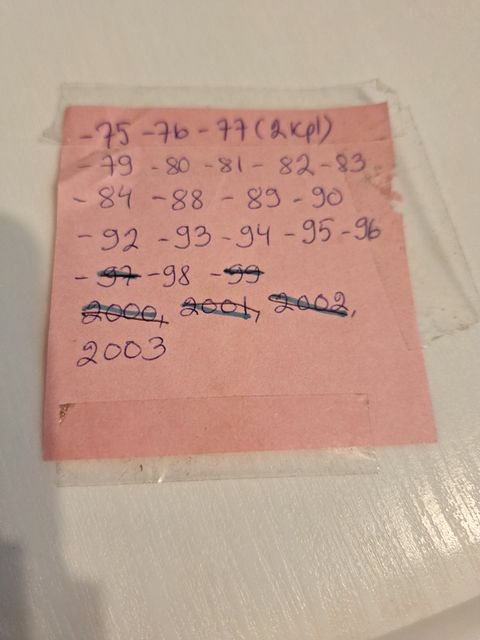 -75 -76 -77 (2 kpl)
-79 -80 -81 - 82 -83
-84 -88 -89 -90
-92 -93 -94 -95 -96
-97 -98 -99
2000, 2001, 2002,
2003